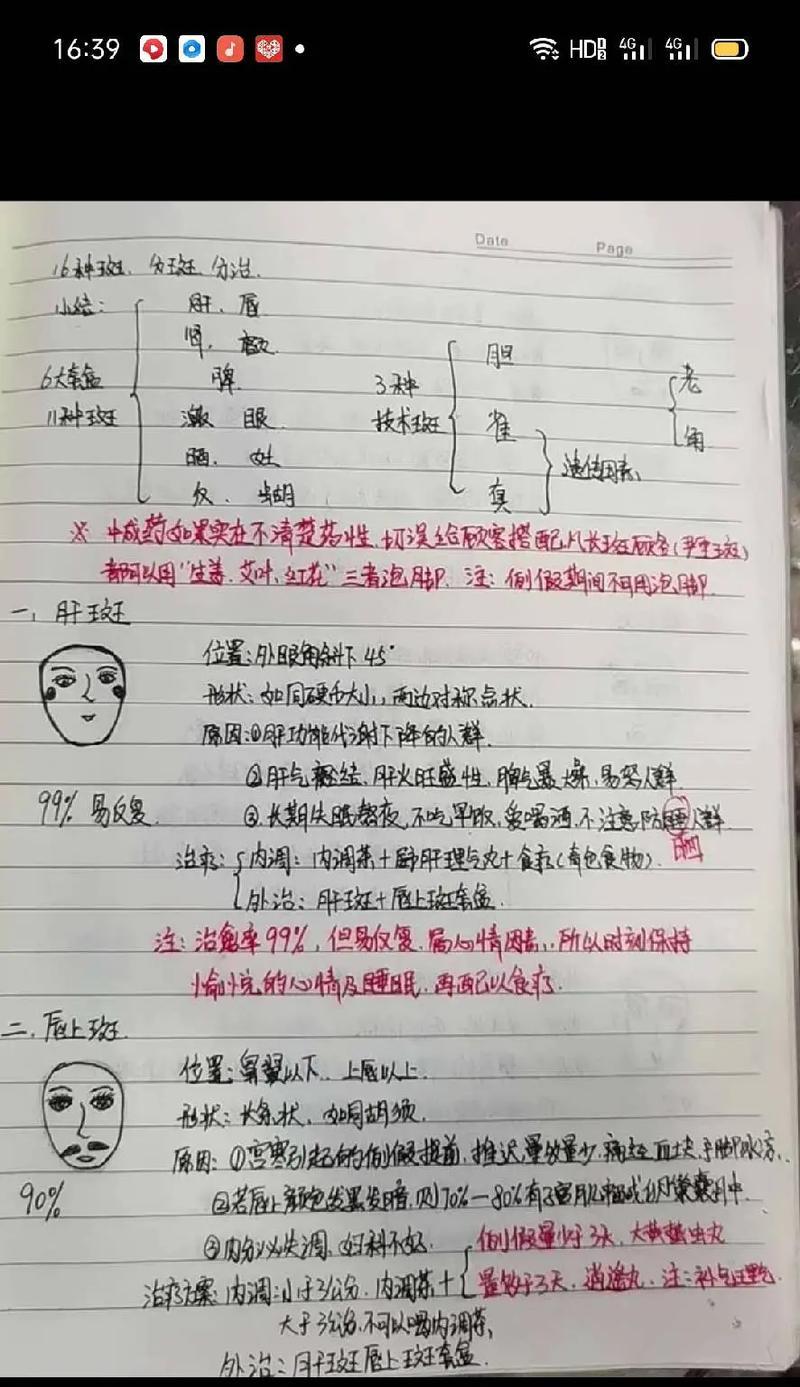 16:39
HD 4G 4G
Date Page
16种斑、分斑分治.
小结: 肝、唇
肾、额
6大套盒 脾 3种 胆 老
11种斑 激 眼 技术斑 雀 角
晒、妊 遗传因素
仅、蝴 真
※ 中成药如果实在不清楚药性,切误给顾客搭配,凡长斑顾客(严重斑)
都可以用“生姜、艾叶、红花”三者泡脚. 注: 例假期间不可用泡脚.
一、肝斑
位置:外眼角斜下45°
形状:如同硬币大小,两边对称点状.
原因:①肝功能代谢下降的人群.
②肝气郁结、肝火旺盛性,脾气暴燥,易怒人群
99% 易反复. ③长期失眠熬夜,不吃早饭,爱喝酒,不注意防睡人群
晒
治疗: 内调: 内调茶+肝理气丸+食疗(青色食物).
外治: 肝斑+唇上斑套盒.
注: 治愈率99%,但易反复.属心情因素,所以时刻保持
愉悦的心情及睡眠.再配以食疗.
二、唇上斑.
位置:鼻翼以下、上唇以上.
形状:长条状、如同胡须.
原因:①宫寒引起的例假提前,推迟,量少,痛经,血块,手脚冰
90% ②若唇上颜色发黑发暗,则70%—80%有子宫肌瘤或卵巢囊肿.
③内分泌失调、妇科不好. 例假量少于3天,大黄蛰虫丸
治疗方案:内调:小于3公分,内调茶+ 量多于3天,逍遥丸,注:补气
大于3公分,不可以喝内调茶,
外治:肝斑唇上斑套盒.